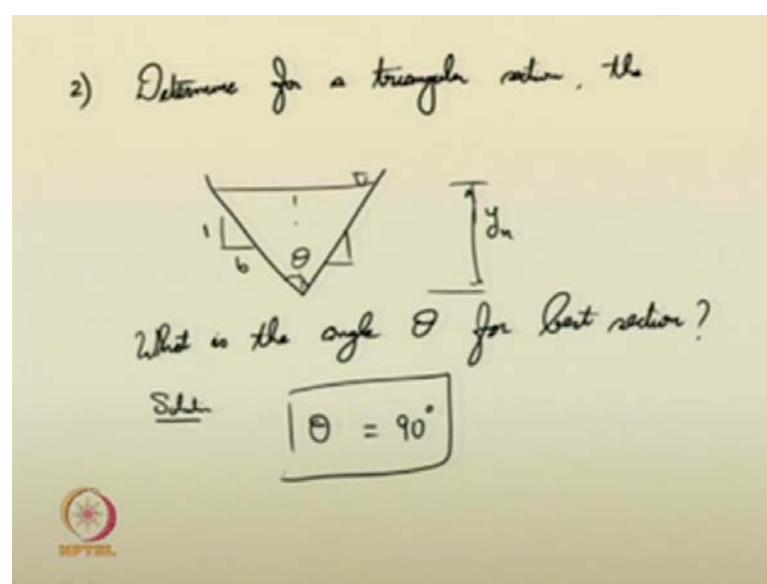 2) Determine for a triangular section, the
1
b
θ
yn
What is the angle θ for best section?
Soluti
θ = 90°
NPTEL